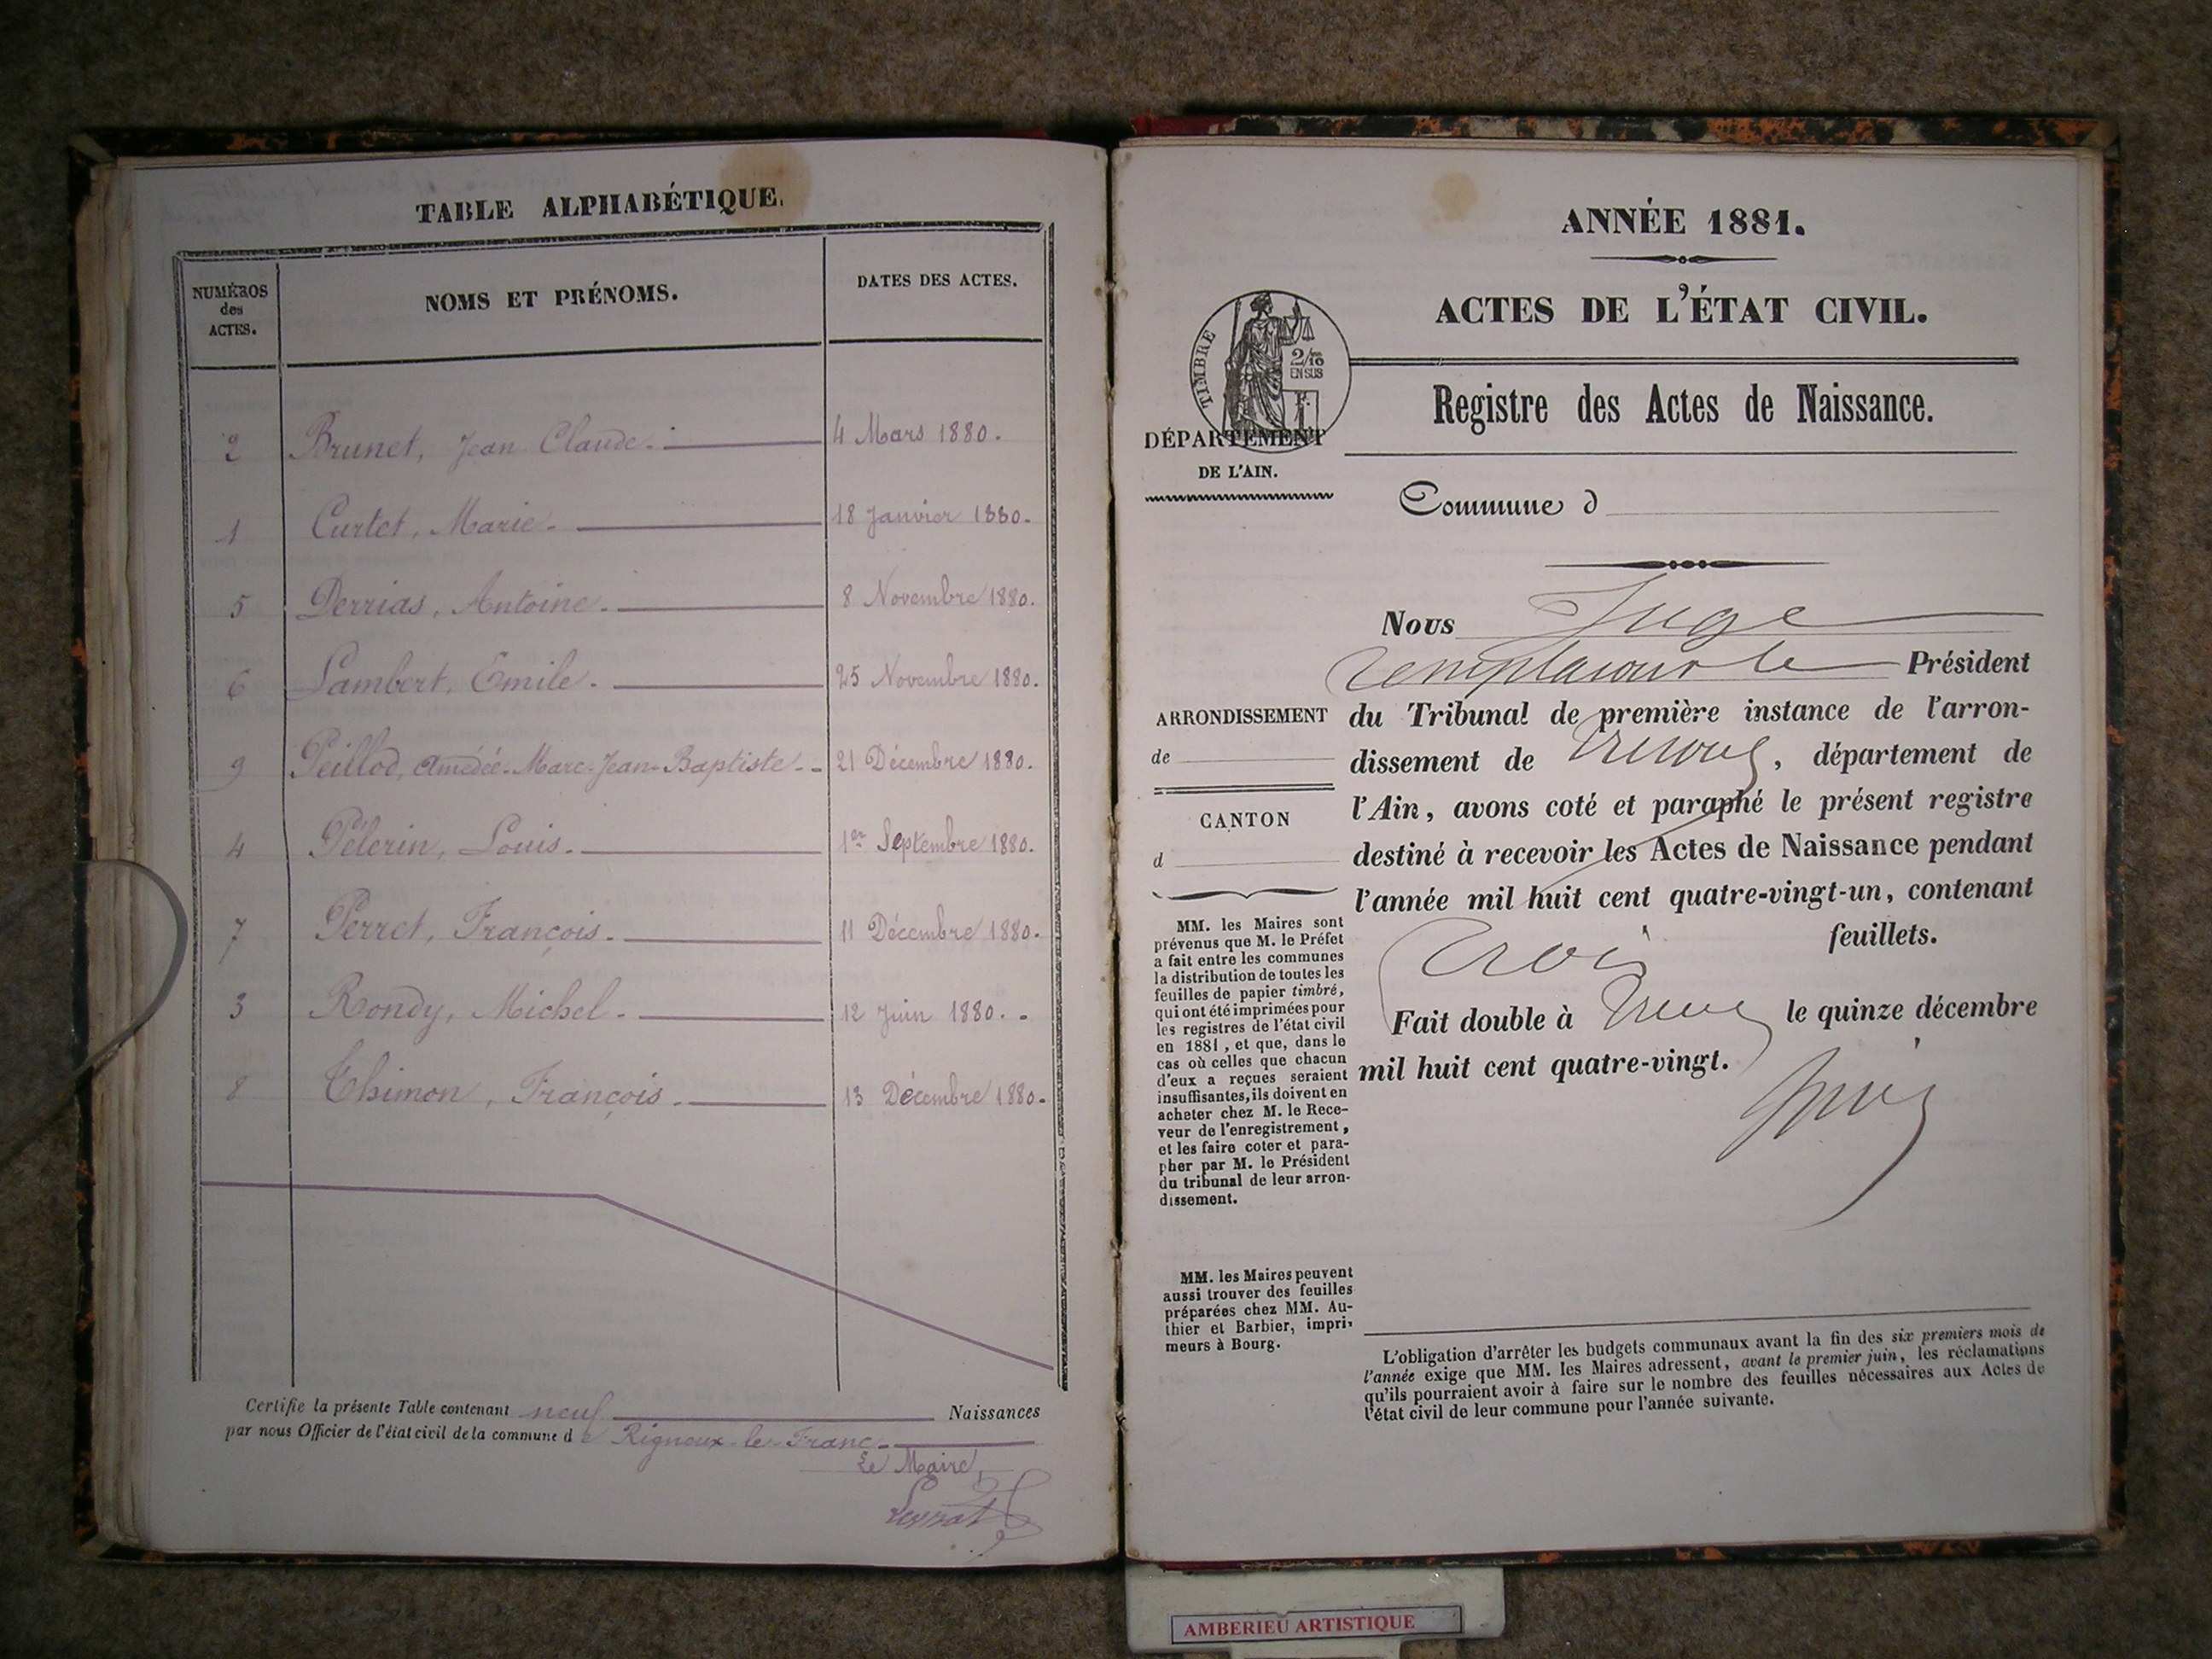 TABLE ALPHABÉTIQUE.
NUMÉROS des ACTES.
NOMS ET PRÉNOMS.
DATES DES ACTES.
2 Brunet, Jean Claude. 4 Mars 1880.
1 Curtet, Marie. 18 Janvier 1880.
5 Derrias, Antoine. 8 Novembre 1880.
6 Lambert, Emile. 25 Novembre 1880.
9 Peillod, Amédée-Marc-Jean-Baptiste. 21 Décembre 1880.
4 Pélerin, Louis. 1er Septembre 1880.
7 Perret, François. 11 Décembre 1880.
3 Rondy, Michel. 12 Juin 1880.
8 Thimon, François. 13 Décembre 1880.
Certifie la présente Table contenant neuf Naissances
par nous Officier de l'état civil de la commune de Rignieux-le-Franc.
Le Maire,
ANNÉE 1881.
ACTES DE L'ÉTAT CIVIL.
TIMBRE
2/10 EN SUS
Registre des Actes de Naissance.
DÉPARTEMENT
DE L'AIN.
Commune d
Nous Juge
remplacant le Président
ARRONDISSEMENT
de
CANTON
d
du Tribunal de première instance de l'arron-
dissement de Trévoux, département de
l'Ain, avons coté et paraphé le présent registre
destiné à recevoir les Actes de Naissance pendant
l'année mil huit cent quatre-vingt-un, contenant
trois feuillets.
Fait double à Trévoux le quinze décembre
mil huit cent quatre-vingt.
MM. les Maires sont
prévenus que M. le Préfet
a fait entre les communes
la distribution de toutes les
feuilles de papier timbré,
qui ont été imprimées pour
les registres de l'état civil
en 1881, et que, dans le
cas où celles que chacun
d'eux a reçues seraient
insuffisantes, ils doivent en
acheter chez M. le Rece-
veur de l'enregistrement,
et les faire coter et para-
pher par M. le Président
du tribunal de leur arron-
dissement.
MM. les Maires peuvent
aussi trouver des feuilles
préparées chez MM. Au-
thier et Barbier, impri-
meurs à Bourg.
L'obligation d'arrêter les budgets communaux avant la fin des six premiers mois de
l'année exige que MM. les Maires adressent, avant le premier juin, les réclamations
qu'ils pourraient avoir à faire sur le nombre des feuilles nécessaires aux Actes de
l'état civil de leur commune pour l'année suivante.
AMBERIEU ARTISTIQUE